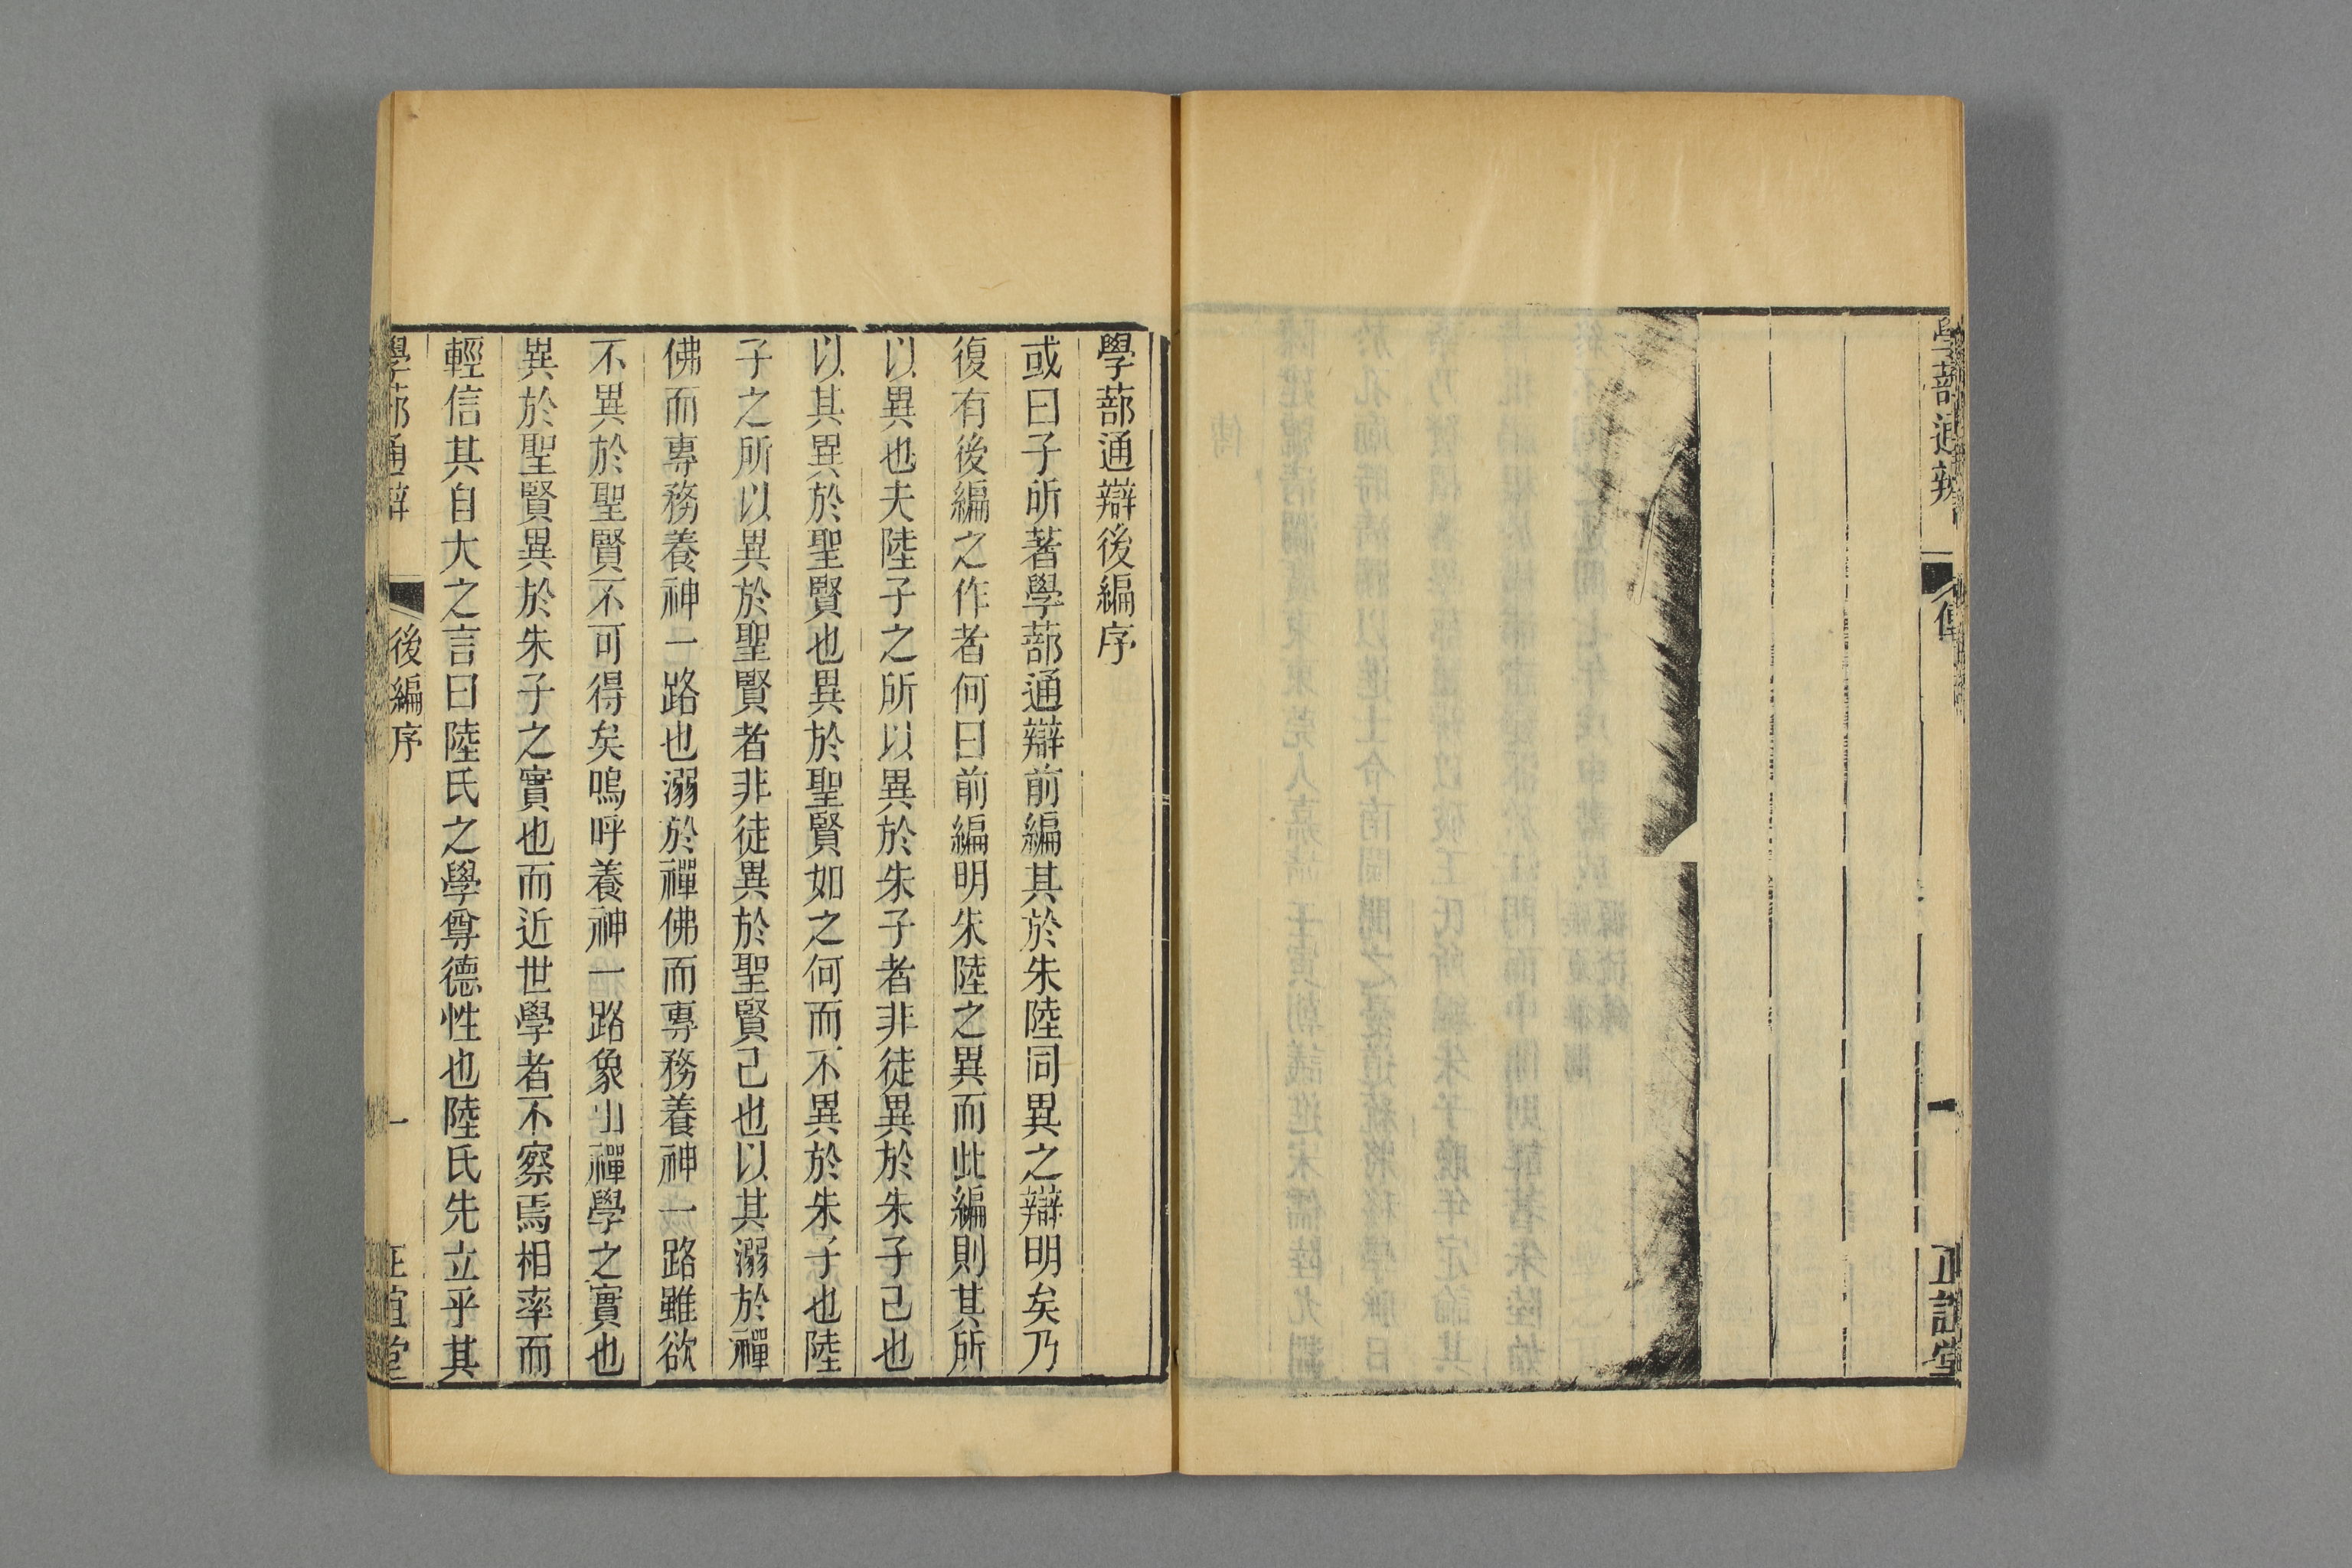 學蔀通辨
傳
一
正誼堂
學蔀通辯後編序
或曰子所著學蔀通辯前編其於朱陸同異之辯明矣乃
復有後編之作者何曰前編明朱陸之異而此編則其所
以異也夫陸子之所以異於朱子者非徒異於朱子己也
以其異於聖賢也異於聖賢如之何而不異於朱子也陸
子之所以異於聖賢者非徒異於聖賢己也以其溺於禪
佛而專務養神一路也溺於禪佛而專務養神一路雖欲
不異於聖賢不可得矣嗚呼養神一路象山禪學之實也
異於聖賢異於朱子之實也而近世學者不察焉相率而
輕信其自大之言曰陸氏之學尊德性也陸氏先立乎其
學蔀通辯
後編序
一
正誼堂